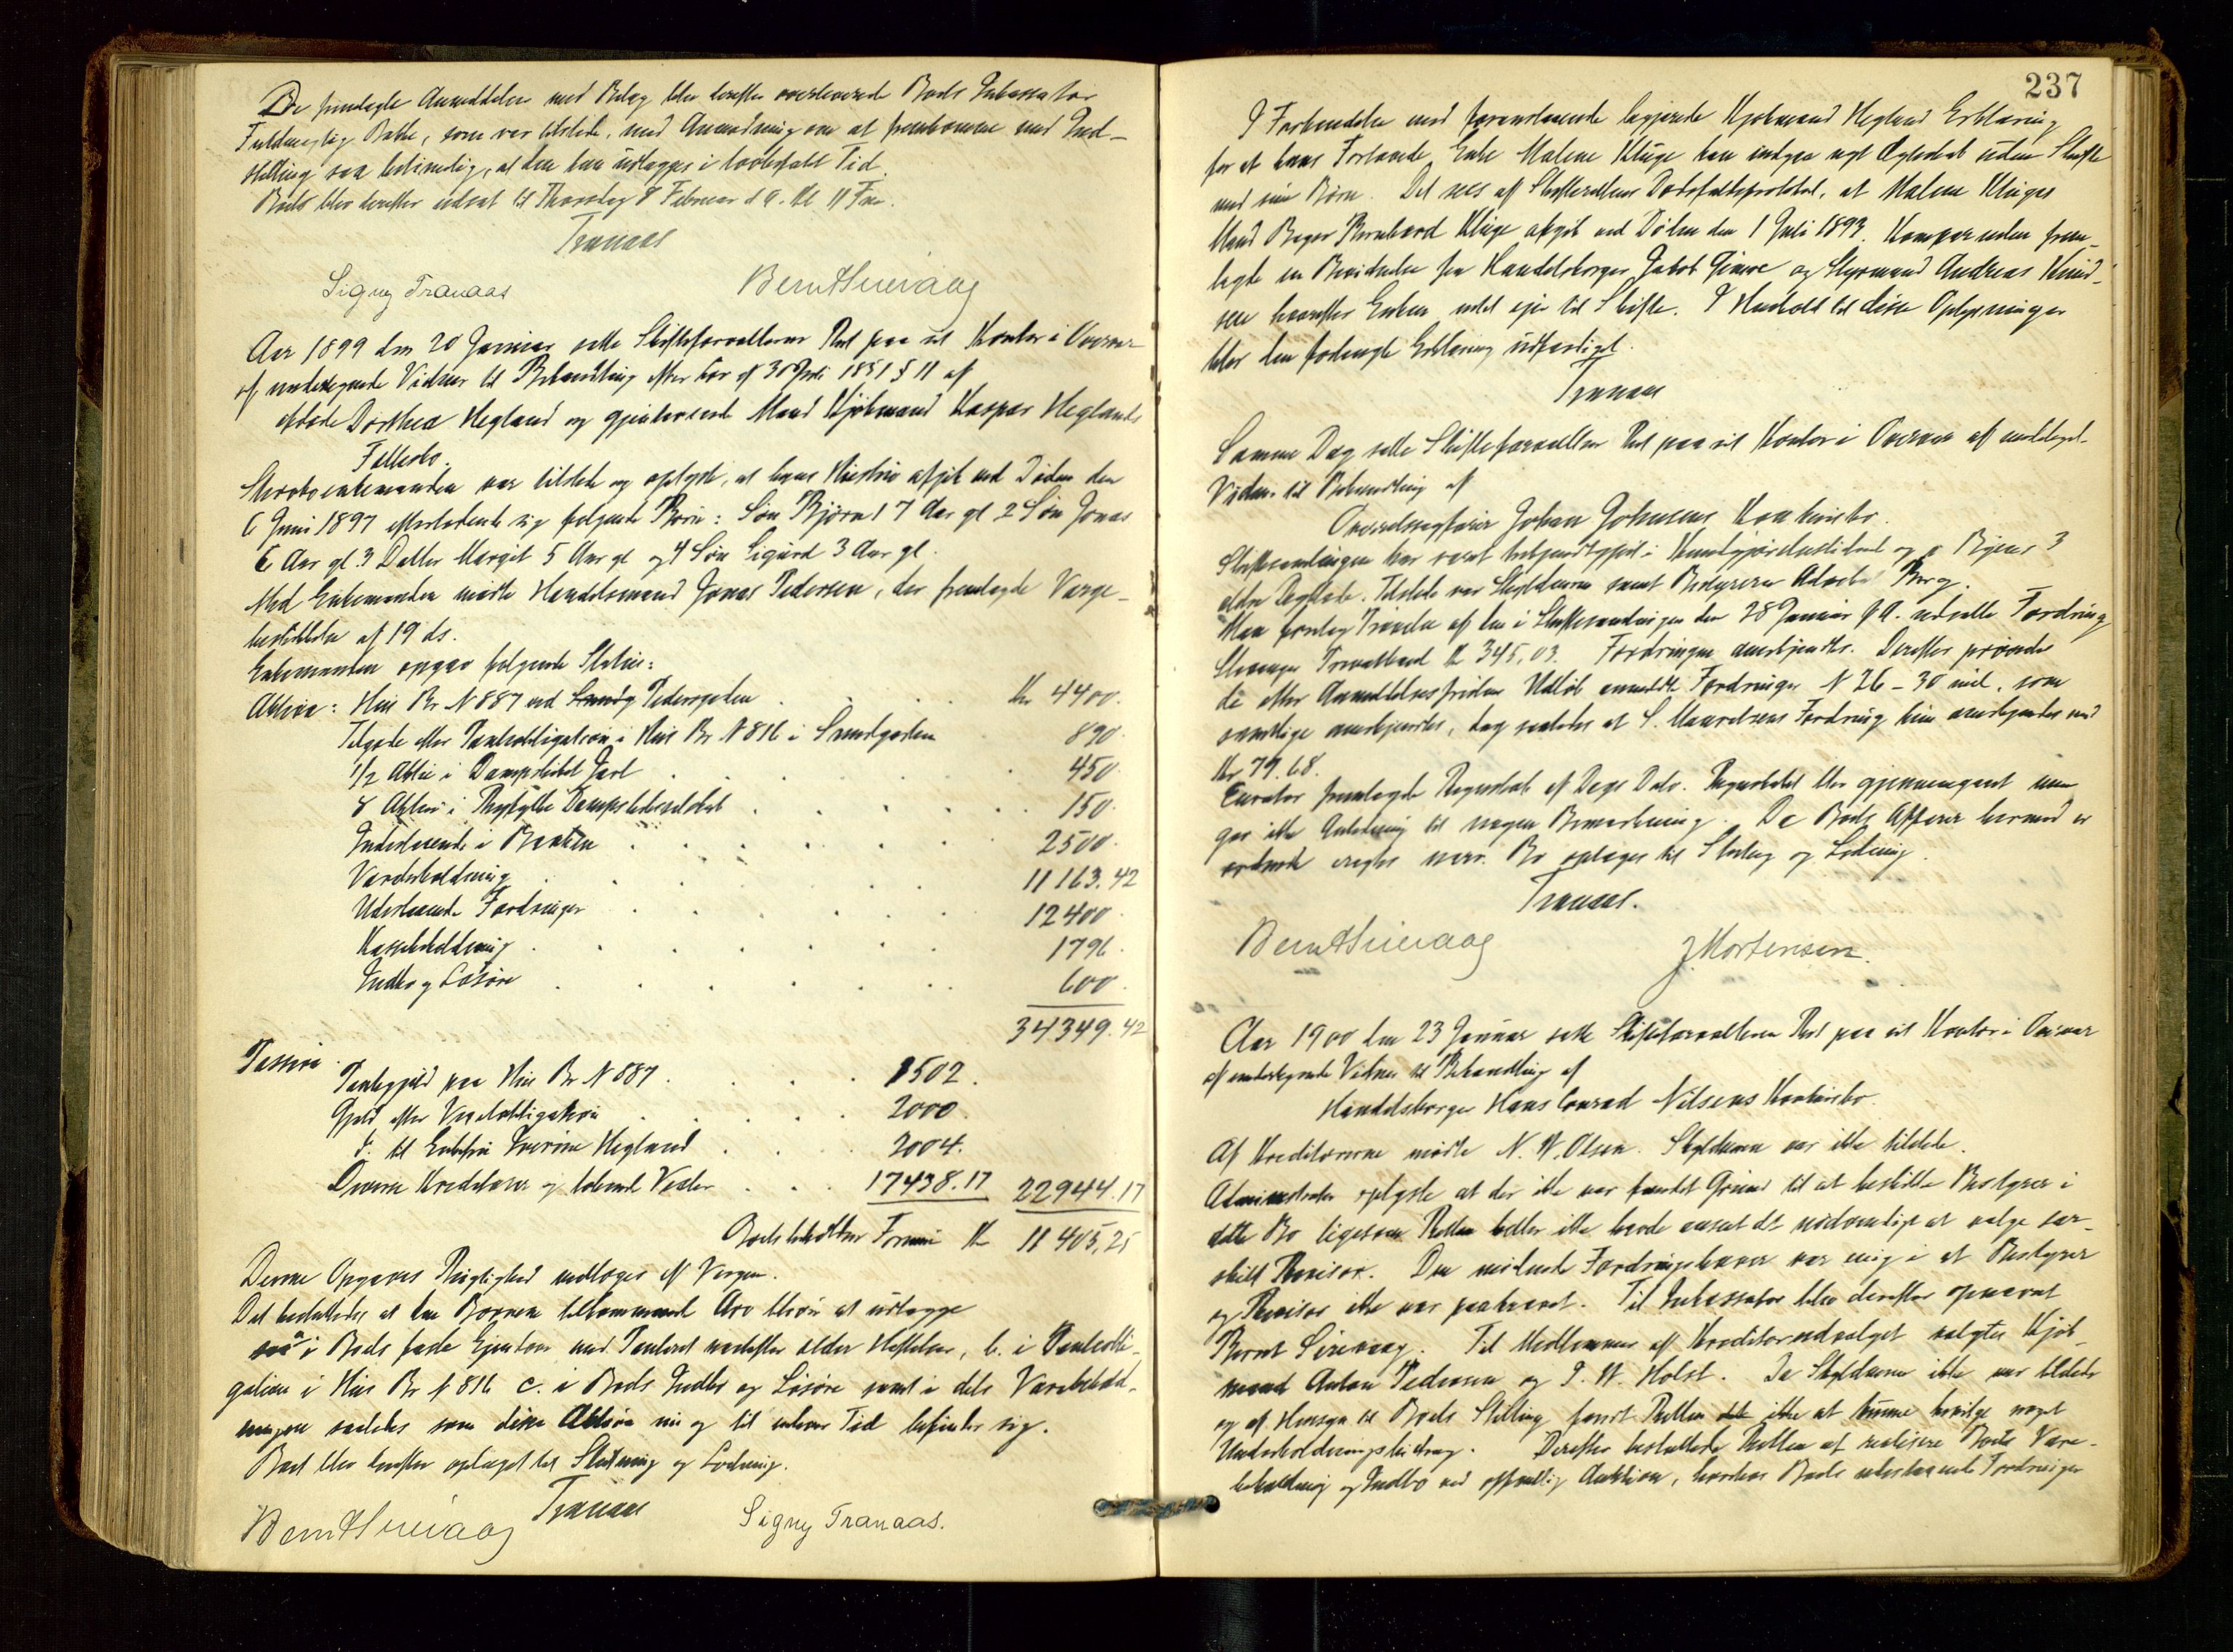 De fremlagte Anmeldelser med Bilag blev derefter overleverede Boets Inkassator
Fuldmægtig Bakke, som var tilstede, med Anmodning om at fremkomme med Ind-
stilling saa betimelig, at den kan udlægges i lovbefalt Tid.
Boet blev derefter udsat til Thorsdag 8 Februar d A. Kl 11 Fm.
Tranaas
Signy Tranaas Bernt Sirevaag
Aar 1899 den 20 Januar satte Skifteforvalteren Ret paa sit Kontor i Overvær
af undertegnede Vidner til Behandling efter Lov af 30 Juli 1851 § 11 af
afdøde Dorthea Hegland og gjenlevende Mand Kjøbmand Kaspar Heglands
Fællesbo.
Stervboenkemanden var tilstede og oplyste, at hans Hustru afgik ved Døden den
6 Juni 1897 efterladende sig følgende Børn: Søn Bjørn 17 Aar gl 2 Søn Jonas
6 Aar gl 3 Datter Margit 5 Aar gl og 4 Søn Sigurd 3 Aar gl.
Med Enkemanden mødte Handelsmand Jonas Pedersen, der fremlagde Værge-
beskikkelse af 19 ds.
Enkemanden opgav følgende Status:
Aktiva: Hus Br N 887 ved Pedersgaden Kr 4400.
Tilgode efter Panteobligation i Hus Br N 816 i Sandgaden 890.
1/2 Aktie i Dampskibet Jarl 450.
8 Aktier i Ryfylke Dampskibsselskab 150.
Indestaaende i Banken 2500.
Varebeholdning 11163.42
Udestaaende Fordringer 12400.
Kassebeholdning 1796.
Indbo og Løsøre 600.
34349.42
Passiva.
Pantegjæld paa Hus Br N 887. 1502.
Gjæld efter Vexelobligation 2000.
d. til Enkefru Severine Hegland 2004.
Diverse Kreditorer og løbende Vexler 17438.17 22944.17
Boets beholdne Formue Kr 11405,25
Denne Opgaves Rigtighed vedtoges af Værgen.
Det besluttedes at den Børnene tilkommende Arv bliver at udlægge
i Boets faste Ejendom med Panteret næstefter ældre Heftelser, b. i Panteobli-
gation i Hus Br N 816 c. i Boets Indbo og Løsøre samt i dets Varebehold-
ningen saaledes som disse Aktiva nu og til enhver Tid befinder sig.
Boet blev derefter optaget til Slutning og Lodning.
Tranaas
Bernt Sirevaag Signy Tranaas.
237
I Forbindelse med foranstaaende begjærede Kjøbmand Hegland Erklæring
for at hans Forlovede, Enke Malene Kluge kan indgaa nyt Ægteskab uden Skifte
med sine Børn. Det sees af Skifterettens Dødsfaldsprotokol, at Malene Kluges
Mand Bager Bernhard Kluge afgik ved Døden den 1 Juli 1893. Komparenten frem-
lagde en Bevidnelse fra Handelsborger Jakob Gimre og Styrmand Andreas Knud-
sen hvorefter Enken intet ejer til Skifte. I Henhold til disse Oplysninger
blev den forlangte Erklæring udfærdiget.
Tranaas
Samme Dag satte Skifteforvalteren Ret paa sit Kontor i Overvær af undertegn.
Vidner til Behandling af
Overretssagfører Johan Johnsens Konkursbo.
Skiftesamlingen har været bekjendtgjort i Kundgjørelsestidende og i Byens 3
ældre Dagblade. Tilstede var Skyldneren samt Bestyreren Advokat Berg.
Man foretog Prøvelse af den i Skiftesamlingen den 28 Januar f A. udsatte Fordring
Stavanger Privatbank Kr 345,03. Fordringen anerkjendtes. Derefter prøvedes
de efter Anmeldelsesfristens Udløb anmeldte Fordringer N 26 - 30 incl. som
samtlige anerkjendtes, dog saaledes at S. Fordring kun anerkjendes med
Kr 79.68.
Curator fremlagde Regnskab af Dags Dato. Regnskabet blev gjennemgaaet men
gav ikke Anledning til nogen Bemærkning. Da Boets Affærer hermed er
ordnede Bo optages til Slutning og Lodning.
Tranaas.
Bernt Sirevaag J. Mortensen.
Aar 1900 den 23 Januar satte Skifteforvalteren Ret paa sit Kontor i Overvær
af undertegnede Vidner til Behandling af
Handelsborger Hans Conrad Nilsens Konkursbo.
Af Kreditorerne mødte N. W. Olsen. Skyldneren var ikke tilstede.
Administrator oplyste at der ikke var fundet Grund til at beskikke Bestyrer i
dette Bo ligesom Retten heller ikke havde anseet det nødvendigt at vælge sær-
skilt Revisor. Den mødende Fordringshaver var enig i at Bestyrer
og Revisor ikke var paakrævet. Til Inkassator blev derefter opnævnt
Bernt Sirevaag. Til Medlemmer af Kreditorudvalget valgtes Kjøb-
mand Anton Pedersen og P. W. Holst. Da Skyldneren ikke var tilstede
og af Hensyn til Boets Stilling fandt Retten ikke at kunne bevilge noget
Underholdningsbidrag. Derefter besluttede Retten at realisere Boets Vare-
beholdning og Indbo ved offentlig Auktion, hvorhos Boets udestaaende Fordringer